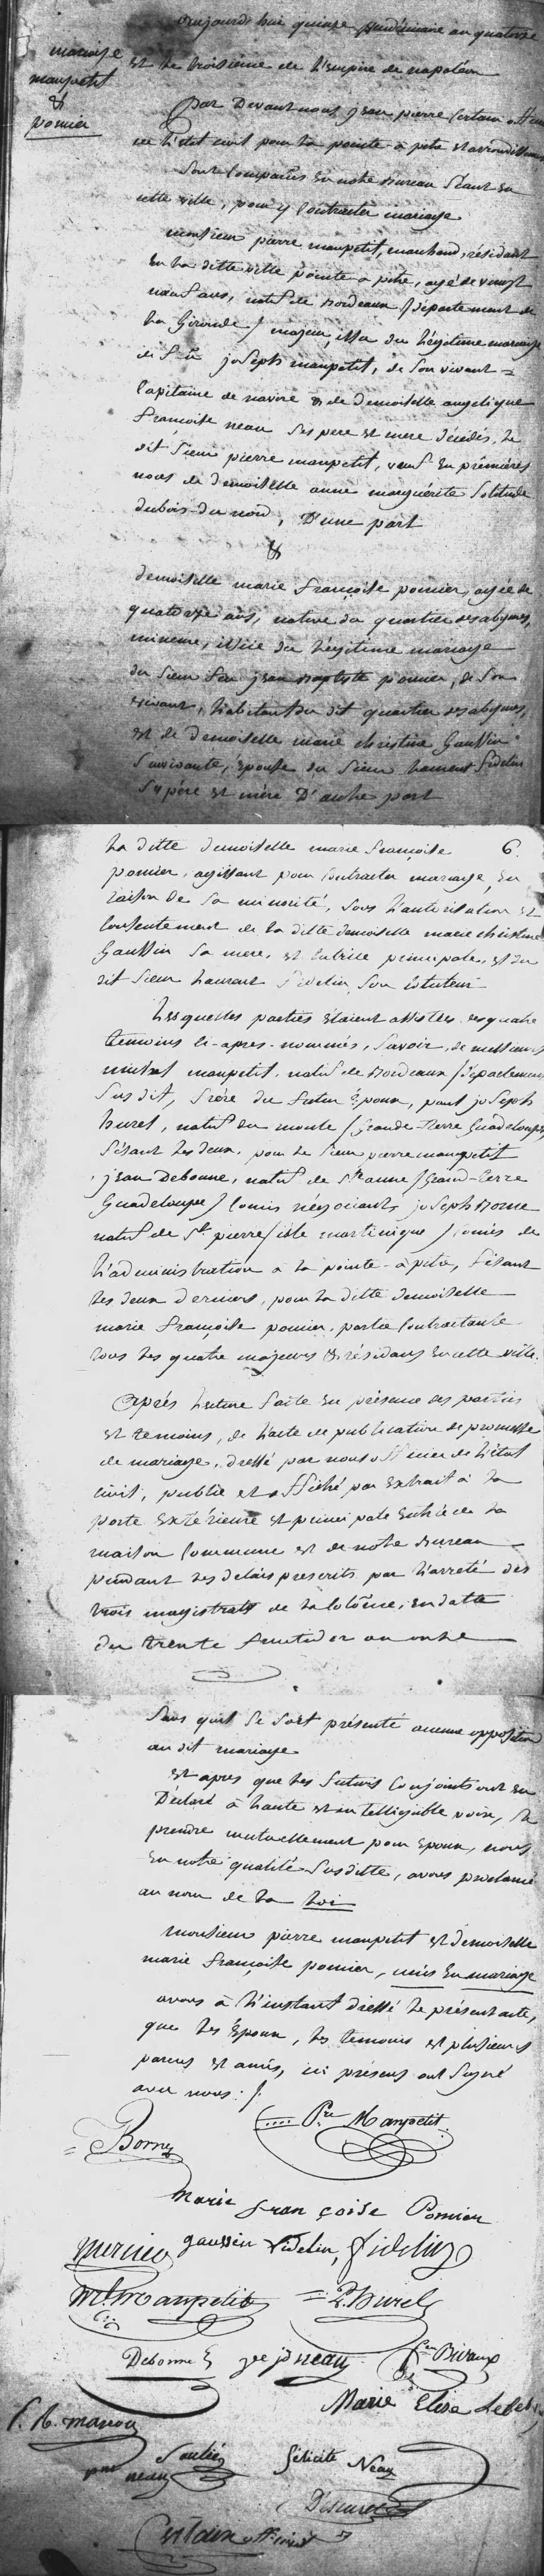 aujourd'hui quinze vendémiaire an quatorze
et le troisième de l'Empire de napoléon
mariage
maupetit
&
pomier
par Devant nous jean pierre Certain officier
de l'état civil pour la pointe-à-pitre et arrondissement
Sont Comparus en notre Bureau Séant en
cette ville, pour y Contracter mariage
monsieur pierre maupetit, marchand, résidant
En la ditte ville pointe a pitre, agé de vingt
neuf ans, natif de Bordeaux (département de
la Gironde) majeur, issu du légitime mariage
de S. joseph maupetit, de Son vivant =
Capitaine de navire & de Demoiselle angelique
françoise neau Ses pere et mere décédés, le
dit Sieur pierre maupetit, veuf En premières
noces de Demoiselle anne marguérite Solitude
dubois-du nord, D'une part
&
Demoiselle marie françoise pomier, agée de
quatorze ans, native du quartier des abymes,
mineure, issüe du légitime mariage
du Sieur feu jean Baptiste pomier, de Son
vivant, habitant du dit quartier des abymes,
et de Demoiselle marie christine Gaussin
Survivante, épouse du Sieur Laurent fidelin
Ses père et mère D'autre part
6.
La ditte Demoiselle marie françoise
pomier, agissant pour Contracter mariage, En
raison de Sa minorité, Sous l'autorisation et
Consentement de la ditte demoiselle marie christine
Gaussin Sa mere, et tutrice principale, et du
dit Sieur Laurent fidelin Son
Lesquelles parties étaient assistées des quatre
temoins ci-après-nommés, Savoir, de messieurs
michel maupetit, natif de Bordeaux (département
Susdit, frère du futur Époux, paul joseph
huret, natif du moule (Grande-Terre Guadeloupe)
S'étant les deux, pour le Sieur pierre maupetit
jean Debonne, natif de Ste anne (Grand-terre
Guadeloupe) Commis négociants, joseph Borne
natif de St pierre (isle martinique) Comis de
l'administration a la pointe-à-pitre, S'étant
les deux derniers, pour la ditte demoiselle
marie françoise pomier, partie Contractante
tous les quatre majeurs & résidans En cette ville.
Après lecture faite En présence des parties
et temoins, de l'acte de publication de promesse
de mariage, dressé par nous officier de l'état
civil, publié et affiché par Extrait à la
porte Extérieure et principale Entrée de la
maison Commune et de notre Bureau
pendant les delais prescrits par l'arreté des
trois magistrats de la Colonie, En datte
du trente fructidor an onze
Sans qu'il Se Soit présenté aucune opposition
au dit mariage
Et apres que les futurs Conjoints ont Eu
Déclaré à haute et intelligible voix, Se
prendre mutuellement pour Epoux, nous
En notre qualité Susditte, avons proclamé
au nom de la Loi
Monsieur pierre maupetit et Demoiselle
marie françoise pomier, unis En mariage
avons à l'instant dressé le présent acte,
que les Epoux, les temoins et plusieurs
parens et amis, ici présens ont Signé
avec nous :/.
Pre Maupetit
Borne
Marie françoise Pomier
gaussin fidelin, fidelin
Ml Maupetit = P. huret
Debonne jneau Bivaux
Marie Elise
manou
Félicité Neau
neau
Certain officier